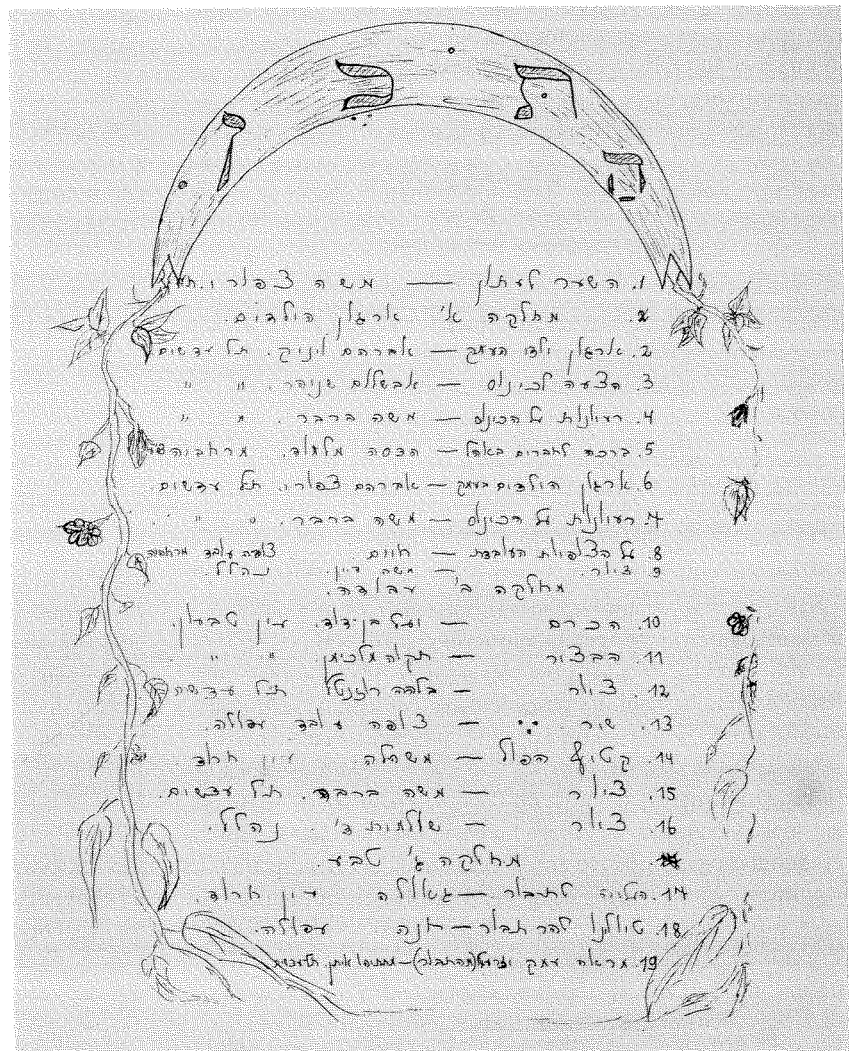 התכן
1. השער לעתון — משה צפורי. תל
מחלקה א' ארגון הילדים.
2. ארגון ילדי העמק — אברהם ליניק. תל עדשים
3. הצעה לכינוס — אבשלום שניהר. " "
4. רעיונות על הכינוס — משה ברבר. " "
5. ברכה לחברים באהל — הכסה מלמוד. מרחביה
6. ארגון הילדים בעמק — אברהם צפורי. תל עדשים
7. רעיונות על הכינוס — משה ברבר. " "
8. על הצופיות העובדת — חיים צופה עובד מרחביה
9. ציור. — משה דיין. נהלל.
מחלקה ב' עבודה.
10. הכרם — יעל בן-דוד. עין טבעון.
11. הבציר — תקוה מלכימן " "
12. ציור — בלהה רוזנטל תל עדשים
13. שיר — צופה עובד עפולה.
14. קטיף הפול — משהלה עין חרוד.
15. ציור — משה ברבר. תל עדשים.
16. ציור — שולמית ד'. נהלל.
מחלקה ג' טבע.
17. העליה לתבור — גאולה עין חרוד.
18. טיולנו להר תבור — חנה עפולה.
19. מראה עמק יזרעאל (מהתבור) —